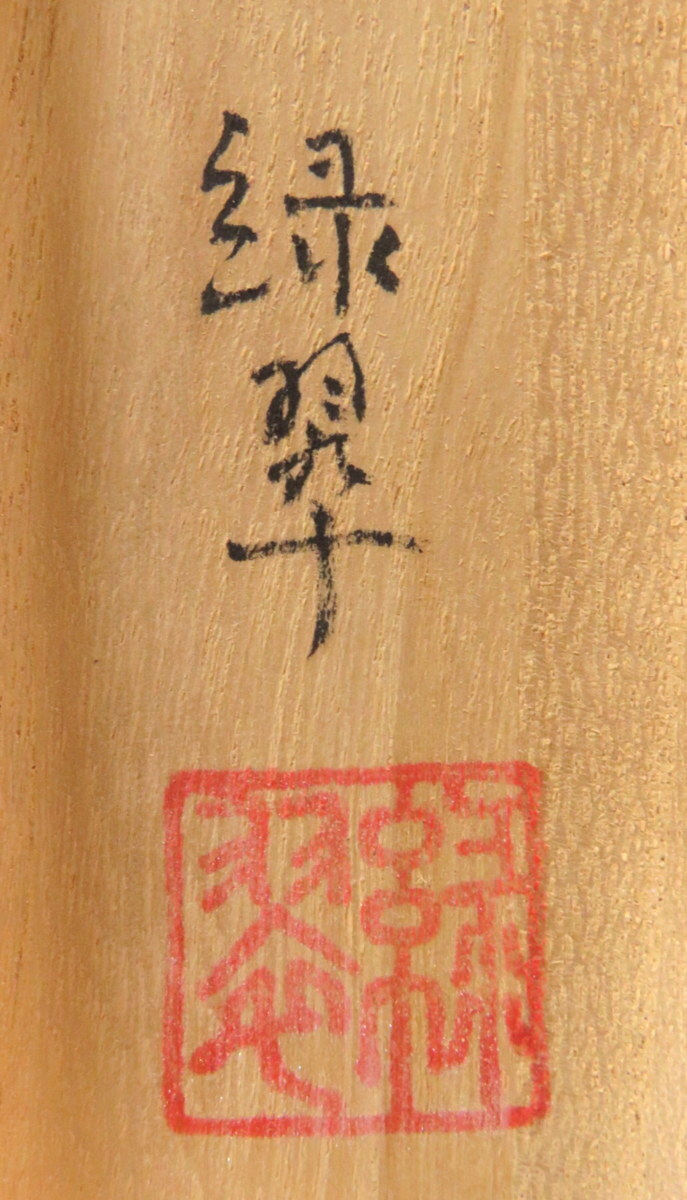 緑翠
緑翠